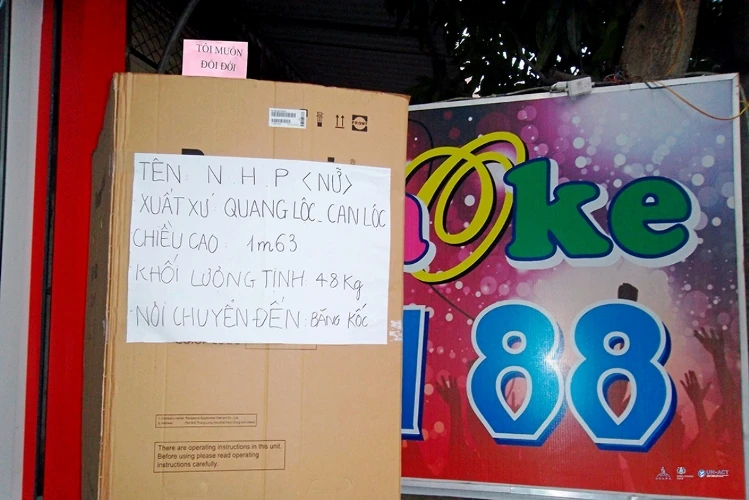 TÔI MUỐN
ĐỔI ĐỜI
TÊN: N.H.P <NỮ>
XUẤT XỨ: QUANG LỘC - CAN LỘC
CHIỀU CAO: 1m63
KHỐI LƯỢNG TỊNH: 48Kg
NƠI CHUYỂN ĐẾN: BĂNG KỐC
There are operating instructions in this unit.
Before using please read operating
instructions carefully.
ke
88
UN-ACT